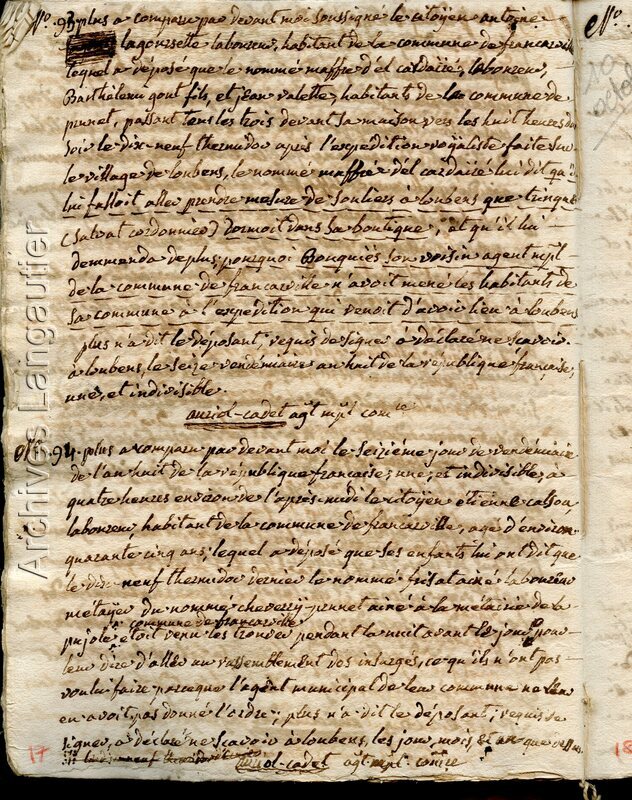 N.º 93 plus a comparu par devant moi soussigné le citoyen antoine
lagourselle laboureur, habitant de la commune de francarville
lequel a déposé que le nommé maffre d'el cardaïré, laboureur,
Barthélemi gont fils, et jean valette, habitants de la commune de
prunet, passant tous les trois devant sa maison vers les huit heures du
soir le dix-neuf thermidor après l'expedition royaliste faite sur
le village de loubens, le nommé maffre del cardaïré lui dit qu'il
lui falloit aller prendre mesure de souliers à loubens que
(salvat cordonnier) dormoit dans sa boutique, et qu'il lui
demmanda de plus pourquoi Bouquiés son voisin agent mpl
de la commune de francarville n'avoit mené les habitants de
sa commune à l'expedition qui venoit d'avoir lieu à loubens
plus n'a dit le déposant, requis de signer à déclaré ne scavoir
à loubens, le seize vendémiaire an huit de la république française,
une, et indivisible.
auriol-cadet agt mpl comre
N.º 94. plus a comparu par devant moi le seizième jour de vendémiaire
de l'an huit de la république française, une, et indivisible, à
quatre heures environ de l'après-midi le citoyen étienne
laboureur habitant de la commune de francarville, agé d'environ
quarante cinq ans, lequel a déposé que ses enfants lui ont dit que
le dix-neuf thermidor dernier le nommé frisat ainé laboureur
métayer du nommé cheverry-prunet ainé à la métairie de la
commune de francarville
pujole étoit venu les trouver pendant la nuit avant le jour pour
leur dire d'aller au rassemblement des insurgés, ce qu'ils n'ont pas
voulu faire parceque l'agent municipal de leur commune ne leur
en avoit pas donné l'ordre; plus n'a dit le déposant, requis de
signer, a déclaré ne scavoir à loubens, les jour, mois et an que dessus
auriol-cadet agt mpl comre
17
N.º
18
Archives Langautier